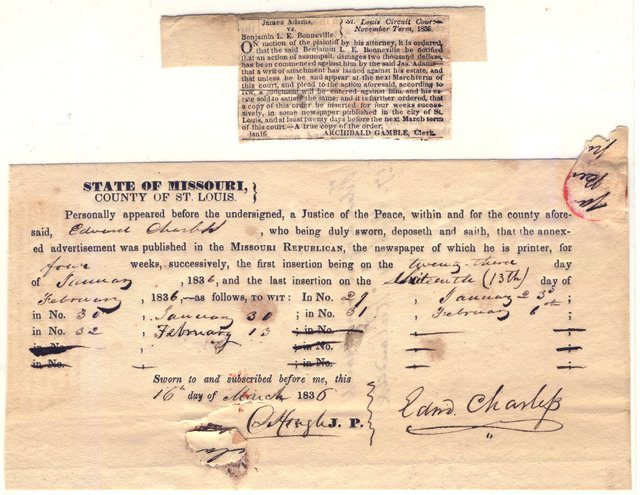 James Adams, } St. Louis Circuit Court
vs. November Term, 1835.
Benjamin L. E. Bonneville.
ON motion of the plaintiff by his attorney, it is ordered,
that the said Benjamin L. E. Bonneville be notified
that an action of assumpsit, damages two thousand dollars,
has been commenced against him by the said Jas. Adams—
that a writ of attachment has issued against his estate, and
that unless he be and appear at the next March term of
this court, and plead to the action aforesaid, according to
law, a judgment will be entered against him, and his es-
tate sold to satisfy the same; and it is farther ordered, that
a copy of this order be inserted for four weeks succes-
sively, in some newspaper published in the city of St.
Louis, and at least twenty days before the next March term
of this court.—A true copy of the order.
jan16 ARCHIBALD GAMBLE, Clerk.
STATE OF MISSOURI, }
COUNTY OF ST. LOUIS.
Personally appeared before the undersigned, a Justice of the Peace, within and for the county afore-
said, Edward Charless , who being duly sworn, deposeth and saith, that the annex-
ed advertisement was published in the MISSOURI REPUBLICAN, the newspaper of which he is printer, for
four weeks, successively, the first insertion being on the twenty-third day
of January , 1836, and the last insertion on the (13th) day of
February , 1836,—as follows, TO WIT: In No. 29 , January 23d ;
in No. 30 , January 30 ; in No. 31 , February 6th ;
in No. 32 , February 13 ; in No. , ;
in No. , ; in No. , ;
in No. , ; in No. , ;
Sworn to and subscribed before me, this
16th day of March 1836
Hough J. P. } Edwd. Charless